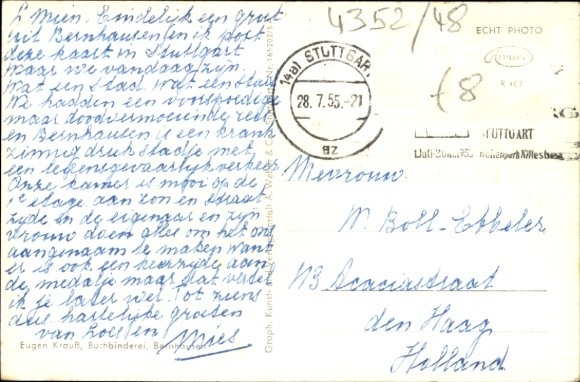 L Mien. Eindelijk een groet
uit Bernhausen en ik post
deze kaart in Stuttgart
waar we vandaag zijn.
Wat een stad. Wat een stad
We hadden een voorspoedige
maar doodvermoeiende reis
en Bernhausen is een krank
zinnig druk stadje met
een levensgevaarlijk verkeer
Onze kamer is mooi op de
1e etage aan zon en straat
zijde en de eigenaar en zijn
vrouw doen alles om het ons
aangenaam te maken want
er is ook een keerzijde aan
de medalje maar dat vertel
ik je later wel. Tot ziens
dus hartelijke groeten
van Loes en
Mies
Eugen Krauß, Buchbinderei, Bernhausen
Graph. Kunst- und
4352/48
ECHT PHOTO
R 467
f8
(14a) STUTTGART
28.7.55.-21
az
STUTTGART
Höhenpark Killesberg
Mevrouw
W. Boll-Ebbeler
113 Acaciastraat
den Haag
Holland